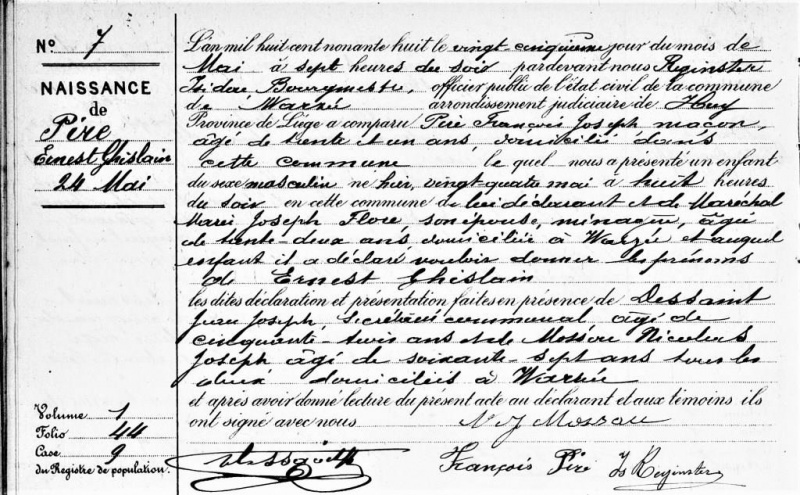 N° 7
NAISSANCE
de
Pire
Ernest Ghislain
24 Mai
L'an mil huit cent nonante huit le vingt-cinquième jour du mois de
Mai à sept heures du soir pardevant nous Reginster
Isidore Bourgmestre, officier public de l'état civil de la commune
de Warzée arrondissement judiciaire de Huy
Province de Liège a comparu Piré François Joseph maçon,
âgé de trente et un ans, domicilié dans
cette commune le quel nous a présenté un enfant
du sexe masculin né hier, vingt-quatre mai à huit heures
du soir en cette commune de lui déclarant et de Maréchal
Marie Joseph Flore son épouse, ménagère, âgée
de trente-deux ans, domiciliée à Warzée et auquel
enfant il a déclaré vouloir donner les prénoms
de Ernest Ghislain
les dites déclaration et présentation faites en présence de Dessaint
Jean Joseph, secrétaire communal âgé de
cinquante-trois ans et de Mossou Nicolas
Joseph âgé de soixante-sept ans tous les
deux domiciliés à Warzée
et après avoir donné lecture du présent acte au déclarant et aux témoins ils
ont signé avec nous N J Mossou
François Piré Is Reginster
Volume 1
Folio 44
Case 9
du Registre de population.